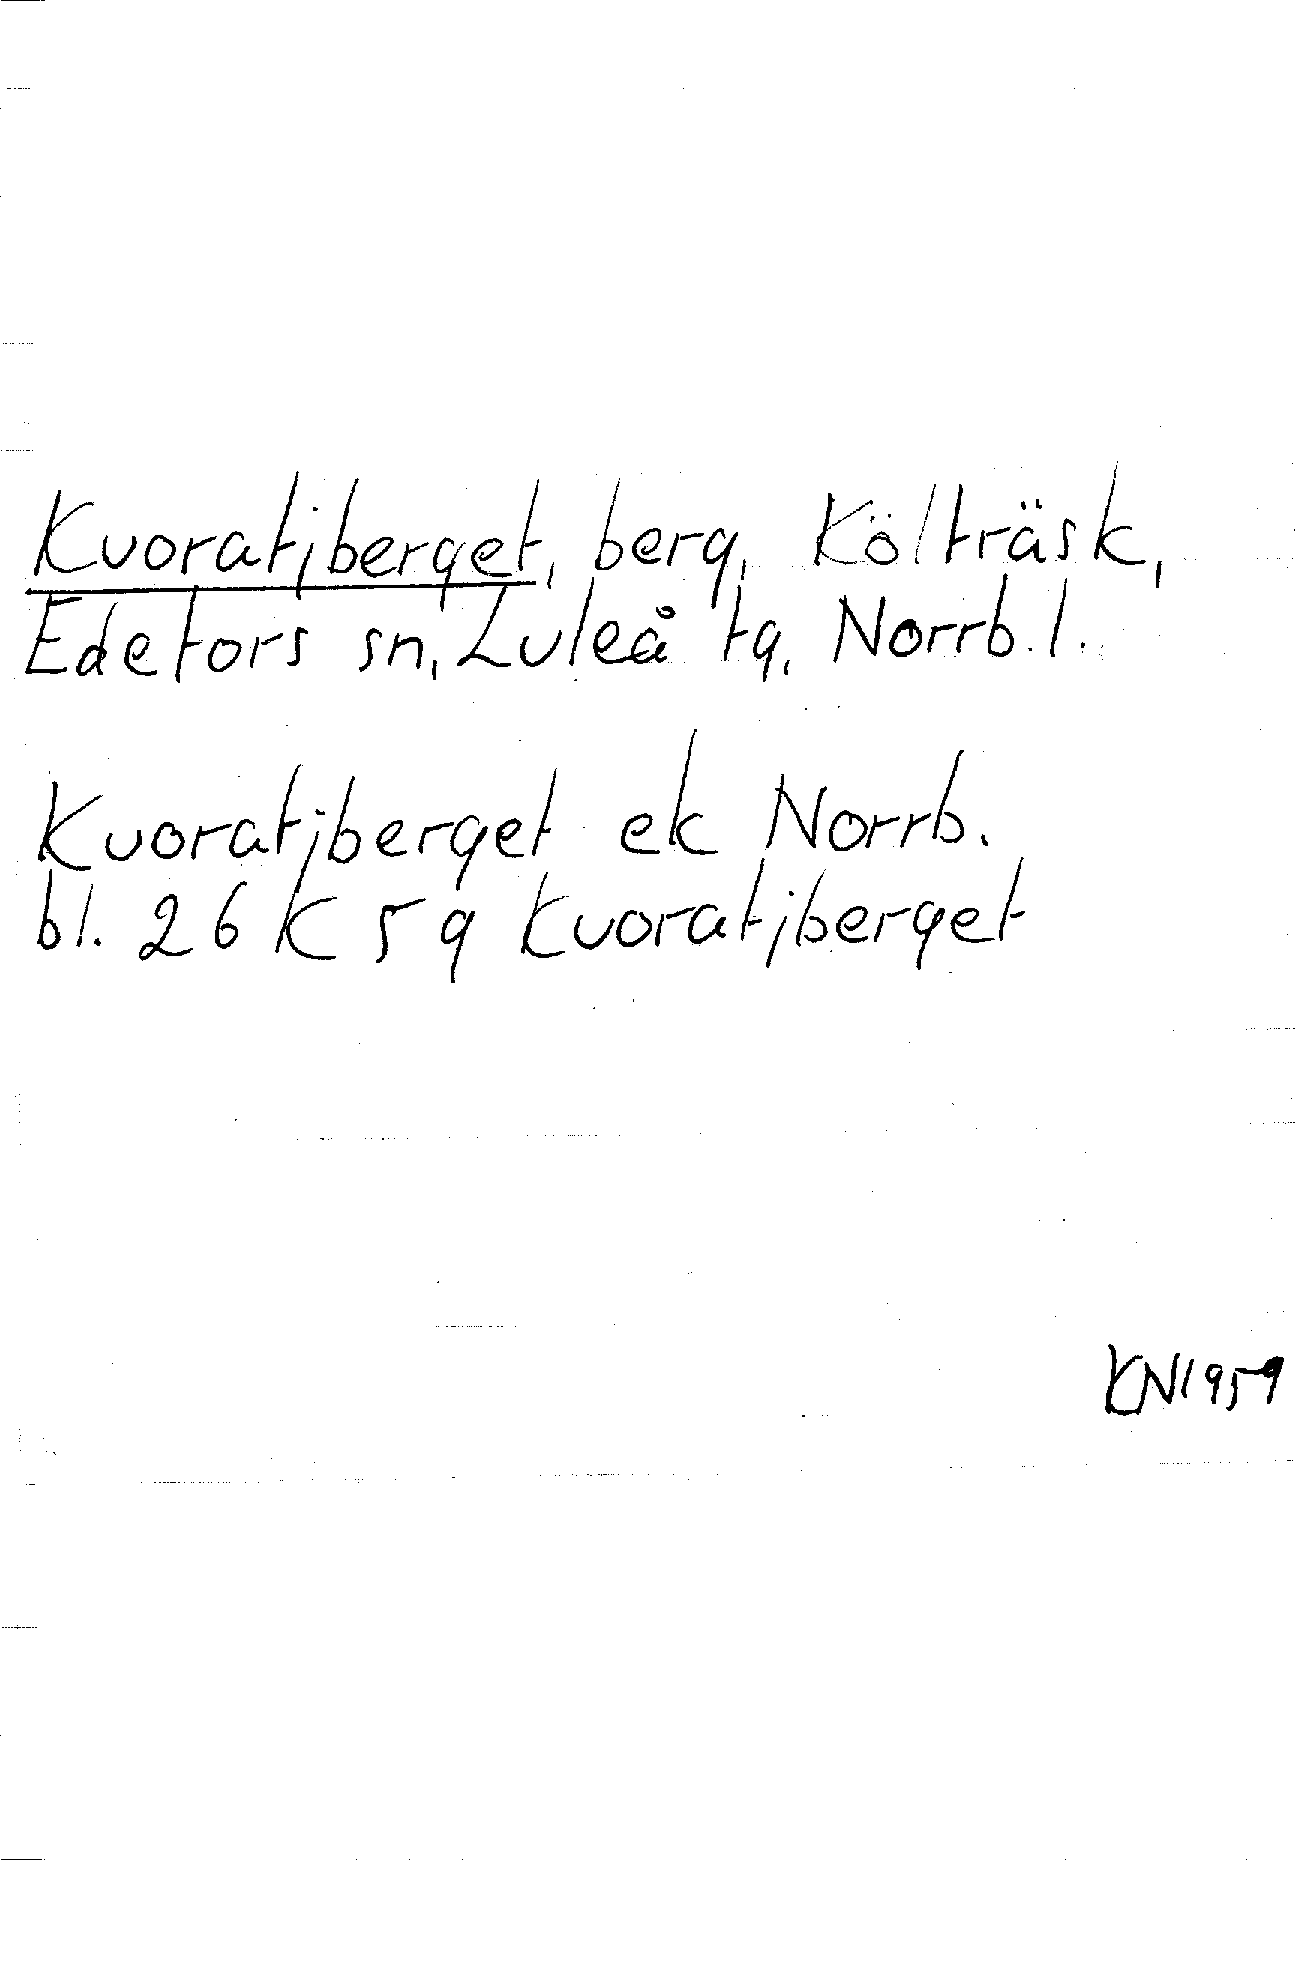 Kvoratjberget, berg, Költräsk,
Edefors sn, Luleå tg, Norrb. l.
Kvoratjberget ek Norrb.
bl. 26 K 5 g Kvoratjberget
KN1959